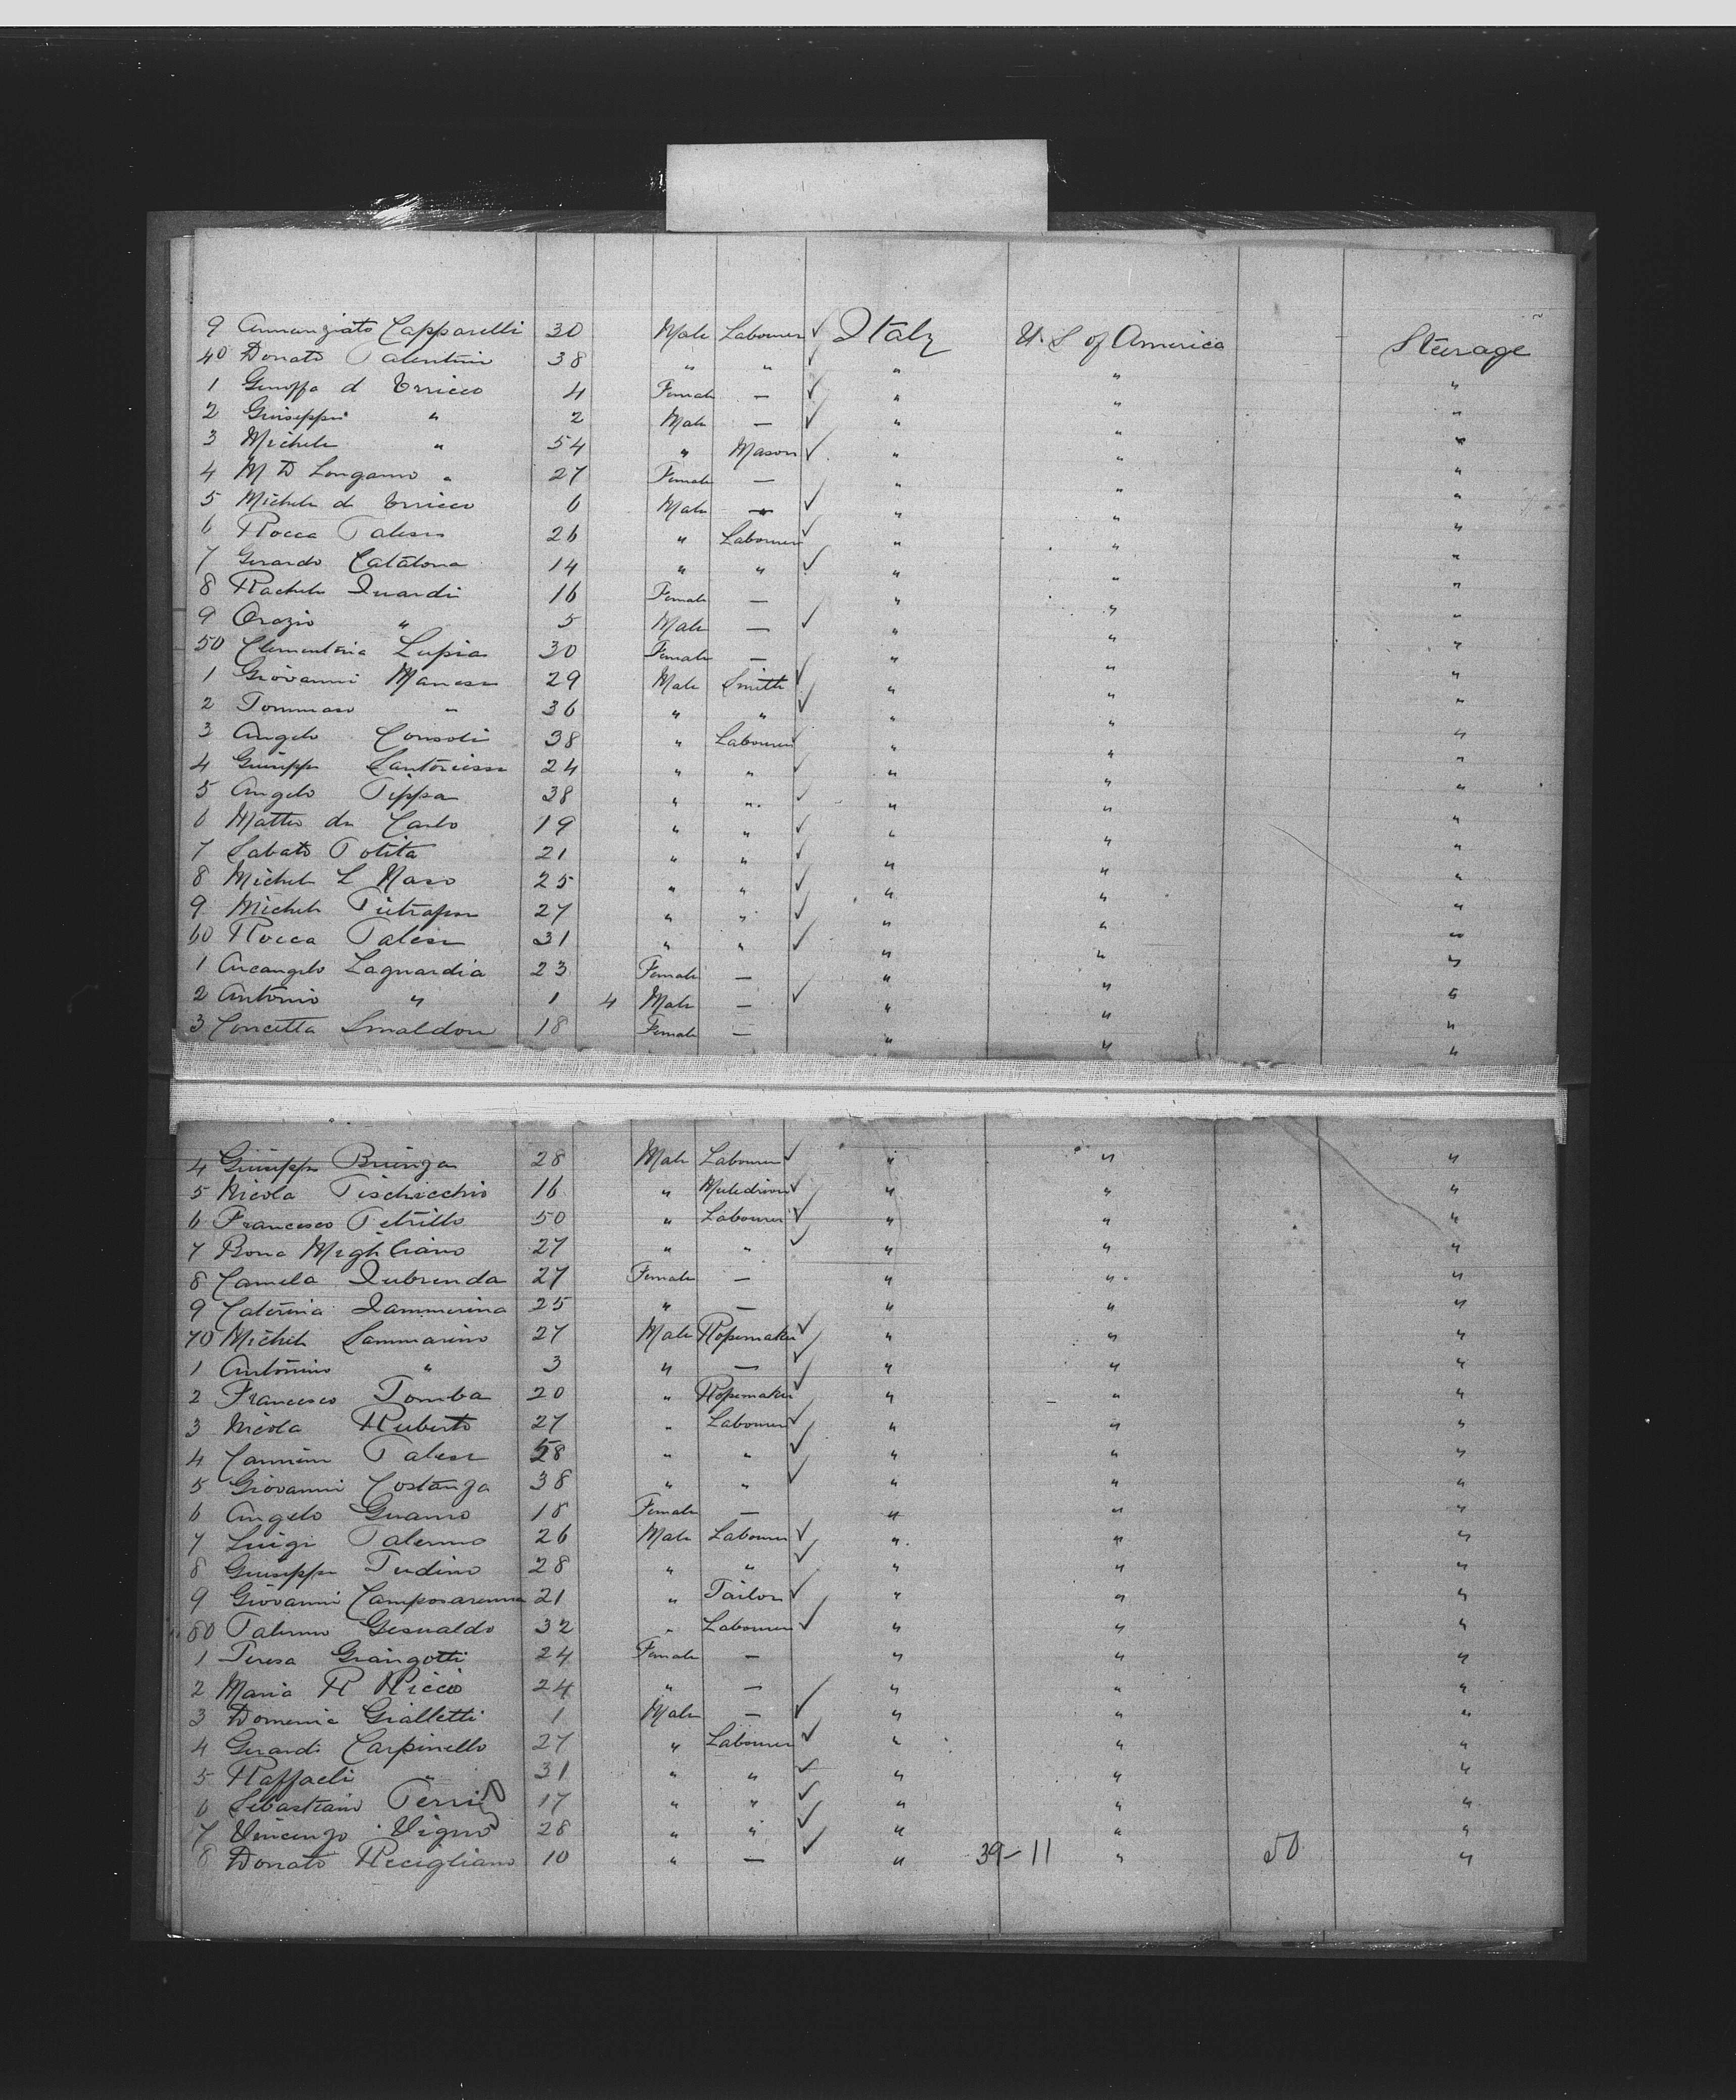 9 Annunziato Capparelli 30 Male Labourer ✓ Italy U. S of America Steerage
40 Donato Valentini 38 " " ✓ " " "
1 d Errico 4 Female — ✓ " " "
2 Giuseppe " 2 Male — ✓ " " "
3 Michele " 54 " Mason ✓ " " "
4 M D Longamo " 27 Female — " " "
5 Michele d Errico 6 Male — ✓ " " "
6 Rocca 26 " Labourer ✓ " " "
7 Gerardo Catatona 14 " " ✓ " " "
8 Rachele 16 Female — " " "
9 Orazio " 5 Male — ✓ " " "
50 Clementina Lupia 30 Female — " " "
1 Giovanni 29 Male Smith ✓ " " "
2 Tommaso " 36 " " ✓ " " "
3 Angelo Consoli 38 " Labourer ✓ " " "
4 Giuseppe 24 " " ✓ " " "
5 Angelo Pippa 38 " " ✓ " " "
6 Matteo de Carlo 19 " " ✓ " " "
7 Sabato Potita 21 " " ✓ " " "
8 Michele L Naso 25 " " ✓ " " "
9 Michele 27 " " ✓ " " "
60 Rocca 31 " " ✓ " " "
1 Arcangelo Laguardia 23 Female — " " "
2 Antonio " 1 4 Male — ✓ " " "
3 Concetta Smaldone 18 Female — " " "
4 Giuseppe 28 Male Labourer ✓ " " "
5 Nicola Pischicchio 16 " Muledriver ✓ " " "
6 Francesco Petrillo 50 " Labourer ✓ " " "
7 Bona Migliano 27 " " ✓ " " "
8 Camela 27 Female — " " "
9 Caterina 25 " — " " "
70 Michele Sammarino 27 Male Ropemaker ✓ " " "
1 Antonino " 3 " — ✓ " " "
2 Francesco Tomba 20 " Ropemaker ✓ " " "
3 Nicola Ruberto 27 " Labourer ✓ " " "
4 Carmine " " ✓ " " "
5 Giovanni Costanza 38 " " ✓ " " "
6 Angelo 18 Female — " " "
7 Luigi Palermo 26 Male Labourer ✓ " " "
8 Giuseppe Tudino 28 " " ✓ " " "
9 Giovanni 21 " Tailor ✓ " " "
80 Palermo Gesualdo 32 " Labourer ✓ " " "
1 Teresa Giangotti 24 Female — " " "
2 Maria R Riccio 24 " — " " "
3 Domenic Gialletti 1 Male — ✓ " " "
4 Gerardi Carpinello 27 " Labourer ✓ " " "
5 Raffaeli " 31 " " ✓ " " "
6 Sebastiano Perri 17 " " ✓ " " "
7 Vincenzo Vigno 28 " " ✓ " " "
8 Donato Recigliano 10 " — ✓ " 39-11 " 50 "